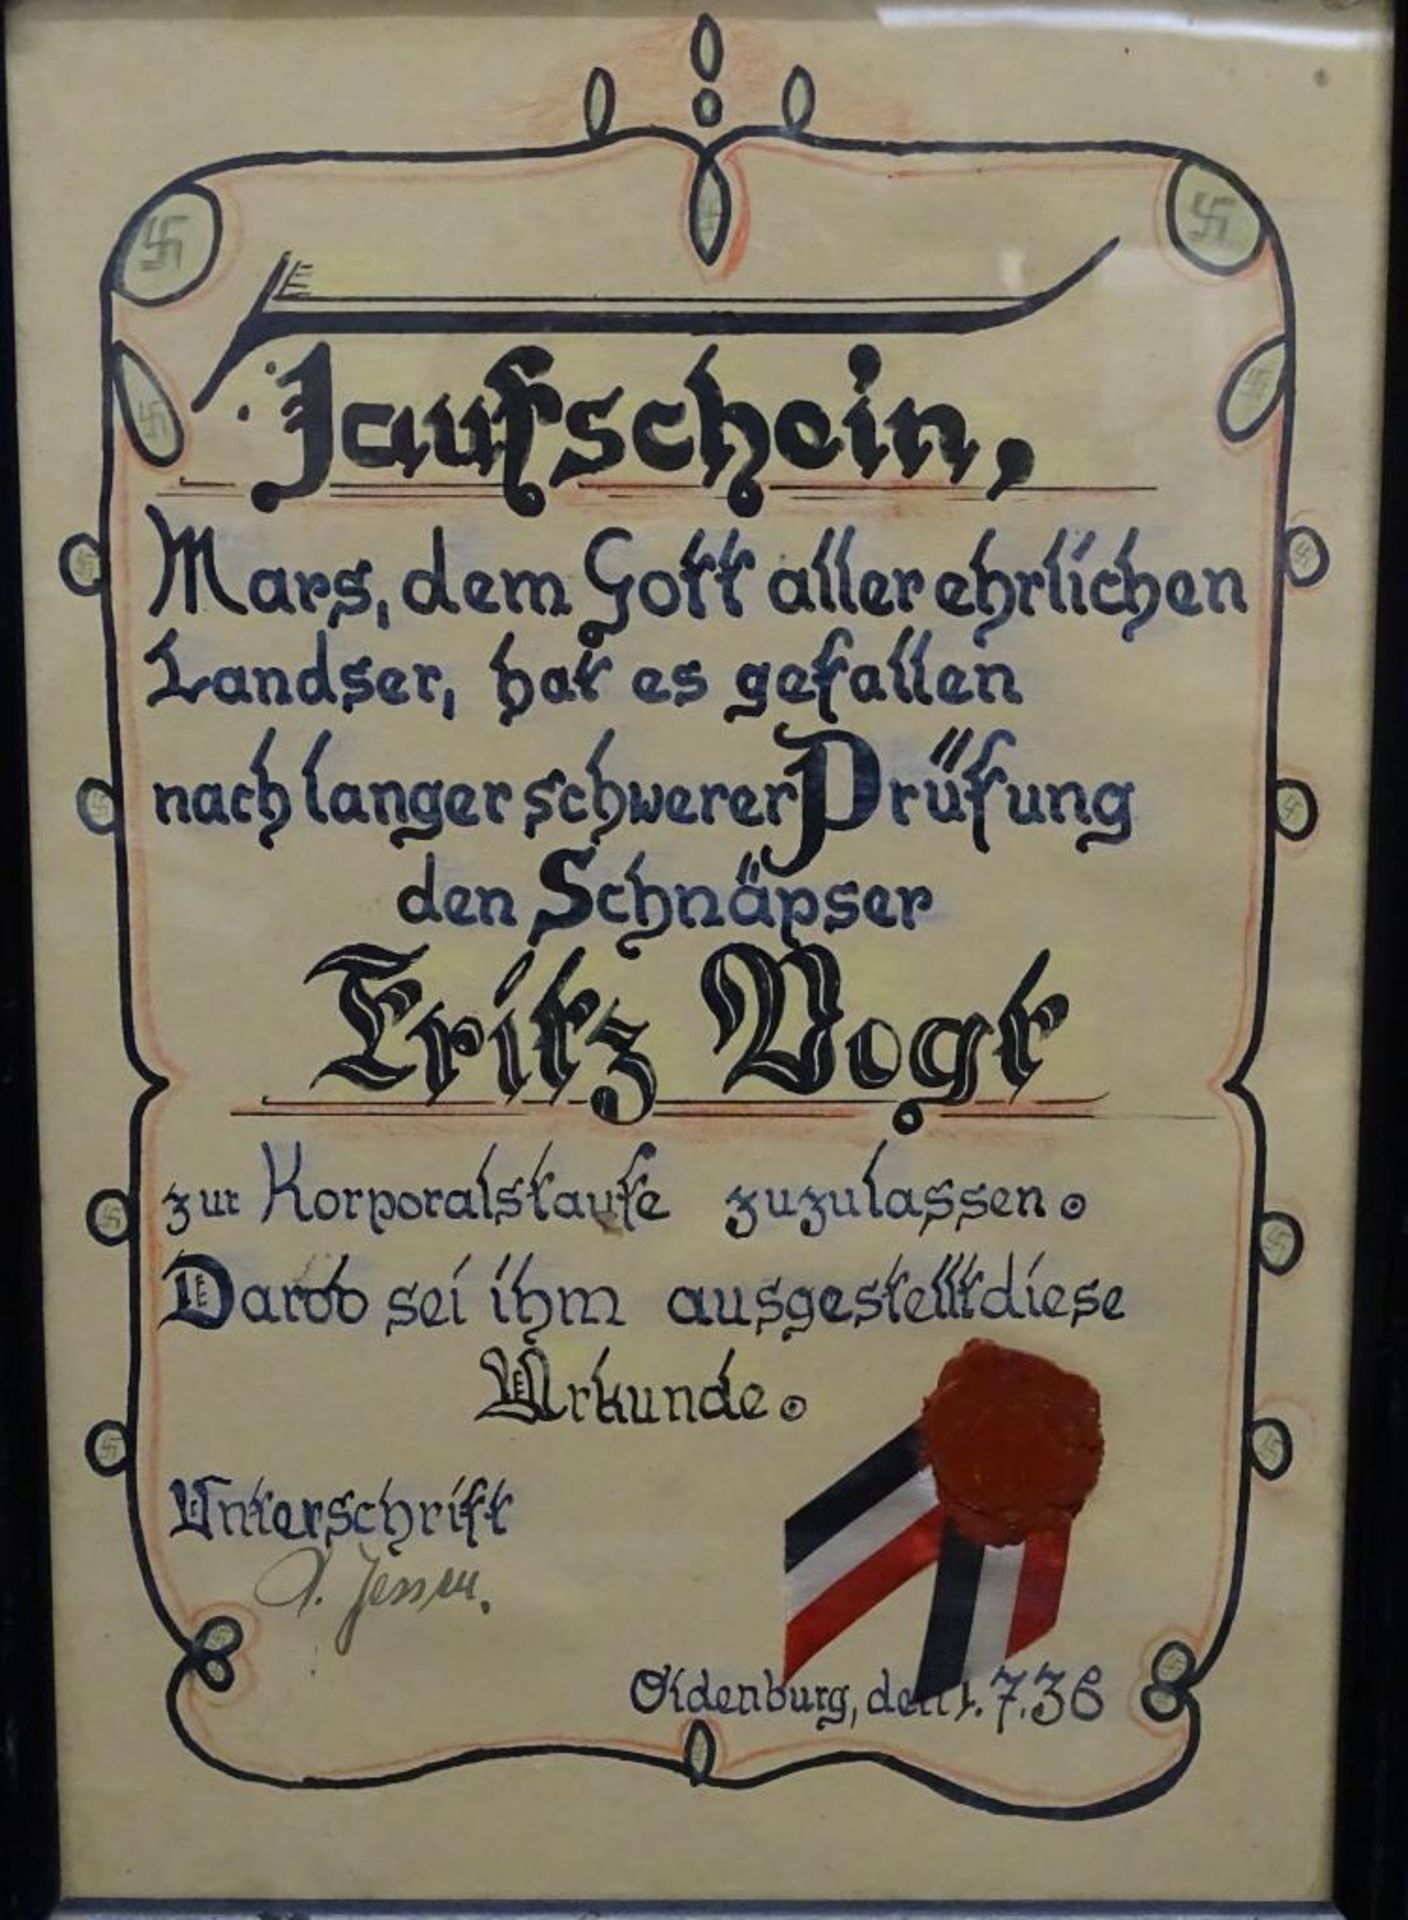 Taufschein,
Mars, dem Gott aller ehrlichen
Landser, hat es gefallen
nach langer schwerer Prüfung
den Schnäpser
Fritz Vogt
zur Korporalstaufe zuzulassen.
Darob sei ihm ausgestellt diese
Urkunde.
Unterschrift
Jessen.
Oldenburg, den 1.7.36